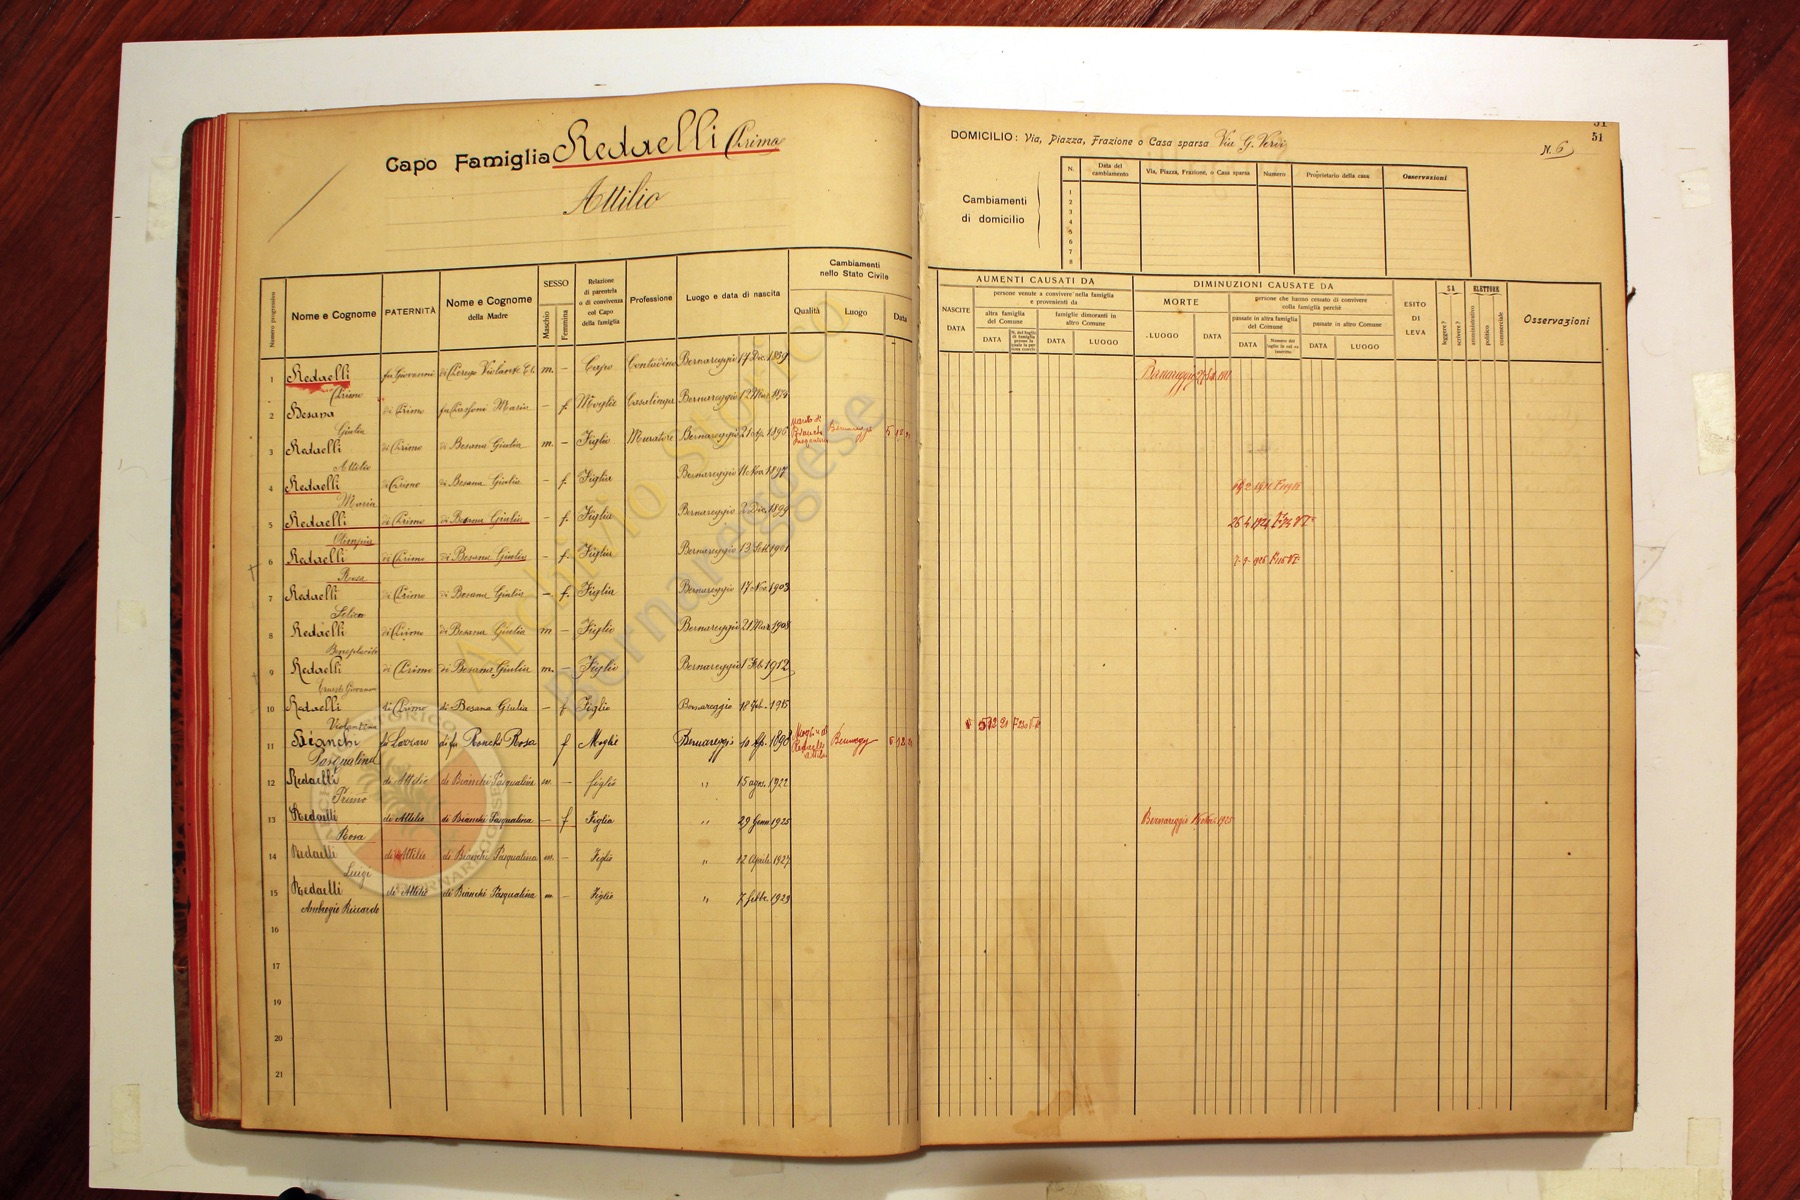 Capo Famiglia Redaelli Primo
Attilio
DOMICILIO: Via, Piazza, Frazione o Casa sparsa Via G. Verdi
N. 6
51
51
Cambiamenti
di domicilio
N.
Data del
cambiamento
Via, Piazza, Frazione, o Casa sparsa
Numero
Proprietario della casa
Osservazioni
1
2
3
4
5
6
7
8
Numero progressivo
Nome e Cognome
PATERNITÀ
Nome e Cognome
della Madre
SESSO
Maschio
Femmina
Relazione
di parentela
o di convivenza
col Capo
della famiglia
Professione
Luogo e data di nascita
Cambiamenti
nello Stato Civile
Qualità
Luogo
Data
AUMENTI CAUSATI DA
NASCITE
DATA
persone venute a convivere nella famiglia
e provenienti da
altra famiglia
del Comune
DATA
famiglie dimoranti in
altro Comune
DATA
LUOGO
DIMINUZIONI CAUSATE DA
MORTE
LUOGO
DATA
persone che hanno cessato di convivere
colla famiglia perchè
passate in altra famiglia
del Comune
DATA
passate in altro Comune
DATA
LUOGO
ESITO
DI
LEVA
SA
leggere?
scrivere?
ELETTORE
amministrativo
politico
commerciale
Osservazioni
1 Redaelli fu Giovanni m. – Capo Contadino Bernareggio 17 Dic. 1869 Bernareggio
Primo
2 Besana Maria – f. Moglie Casalinga Bernareggio 12 Mar.
Giulia
3 Redaelli di Primo di Besana Giulia m. – Figlio Muratore Bernareggio 21 1896 Marito di Bianchi Pasqualina Bernareggio
Attilio
4 Redaelli di Primo di Besana Giulia – f. Figlia Bernareggio 11 Nov. 1897
Maria
5 Redaelli di Primo di Besana Giulia – f. Figlia Bernareggio 2 Dic. 1899
Olimpia
6 Redaelli di Primo di Besana Giulia – f. Figlia Bernareggio 13 Sett. 1901
Rosa
7 Redaelli di Primo di Besana Giulia – f. Figlia Bernareggio 17 Nov. 1903
8 Redaelli di Primo di Besana Giulia m – Figlio Bernareggio 21 Mar. 1908
9 Redaelli di Primo di Besana Giulia m. – Figlio Bernareggio 1 Feb. 1912
Ernesto Giovanni
10 Redaelli di Primo di Besana Giulia – f Figlia Bernareggio 18 Feb. 1915
Violantina
11 Bianchi fu Ronchi Rosa f Moglie Bernareggio 10 1898 Moglie di Redaelli Attilio
Pasqualina
12 Redaelli di Attilio di Bianchi Pasqualina m. – figlio " 15 agos. 1922
Primo
13 Redaelli di Attilio di Bianchi Pasqualina – f Figlia " 29 Genn 1925 Bernareggio
Rosa
14 Redaelli di Attilio di Bianchi Pasqualina m. – Figlio " 12 Aprile 1927
Luigi
15 Redaelli di Attilio di Bianchi Pasqualina m – Figlio " 7 febbr. 1929
Ambrogio Riccardo
16
17
18
19
20
21
Archivio Storico
Bernareggese